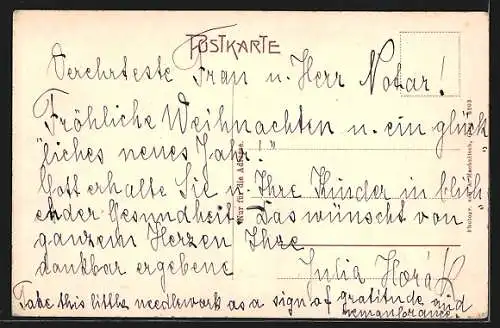 POSTKARTE
Verehrteste Frau u. Herr Notar!
Fröhliche Weihnachten u. ein glück
"liches neues Jahr!"
Gott erhalte Sie u. Ihre Kinder in blüh
ender Gesundheit. Das wünscht von
ganzem Herzen Ihre
dankbar ergebene
Julia Horák
Take this little needlework as a sign of gratitude and
remembrance.
Nur für die Adresse.